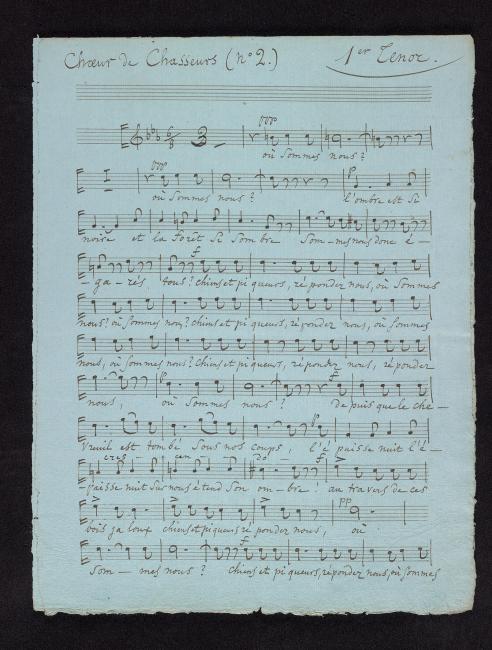 Chœur de Chasseurs (nº 2.) 1er Tenor.
ppp
6/8 3
où sommes nous?
ppp
où sommes nous? l'ombre est si
noire et la forêt si sombre som-mes nous donc é-
f
-ga-rés, tous? chiens et piqueurs, répondez nous, où sommes
nous? où sommes nous? chiens et piqueurs, répondez nous, où sommes
nous, où sommes nous? chiens et piqueurs, répondez nous, répondez
p f
nous, où sommes nous? depuis que le che-
p
vreuil est tombé sous nos coups, l'épaisse nuit l'é-
cres cen do f
paisse nuit sur nous étend son ombre! au travers de ces
pp
bois jaloux chiens et piqueurs répondez nous, où
f
som-mes nous? chiens et piqueurs, répondez nous, où sommes